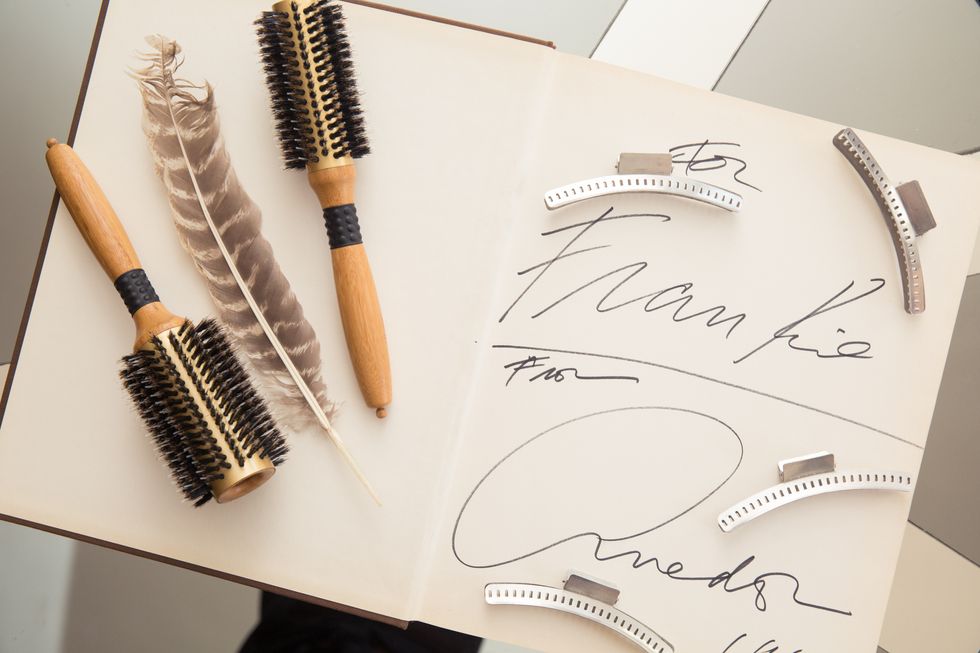 For
Frankie
From
Avedon